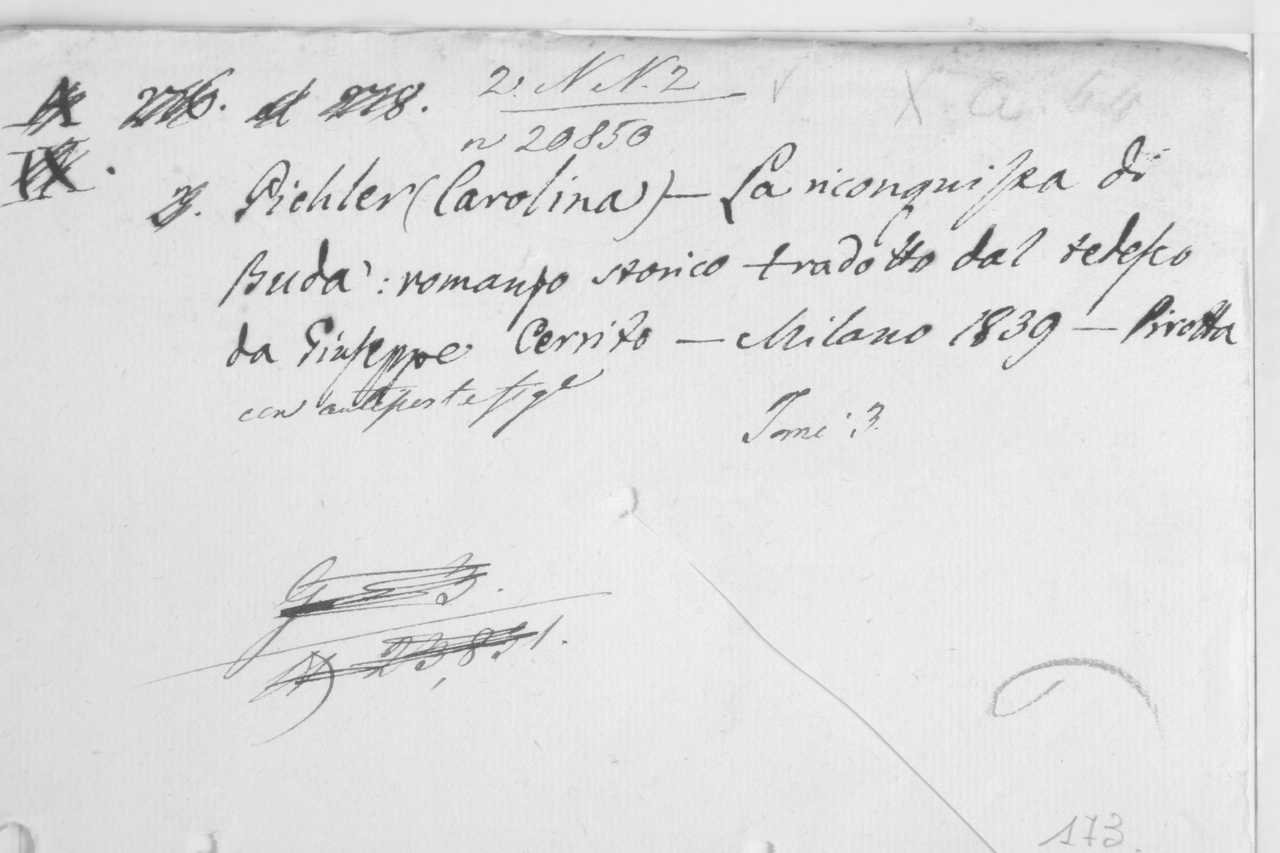 2. N N. 2
276. al 278.
n 20850
IX.
3. Pichler (Carolina) — La riconquista di
Buda : romanzo storico tradotto dal tedesco
da Giuseppe Cerrito — Milano 1839 — Pirotta
con antiporte fig.e
Tomi 3.
G 3.
N 23,851.
173.